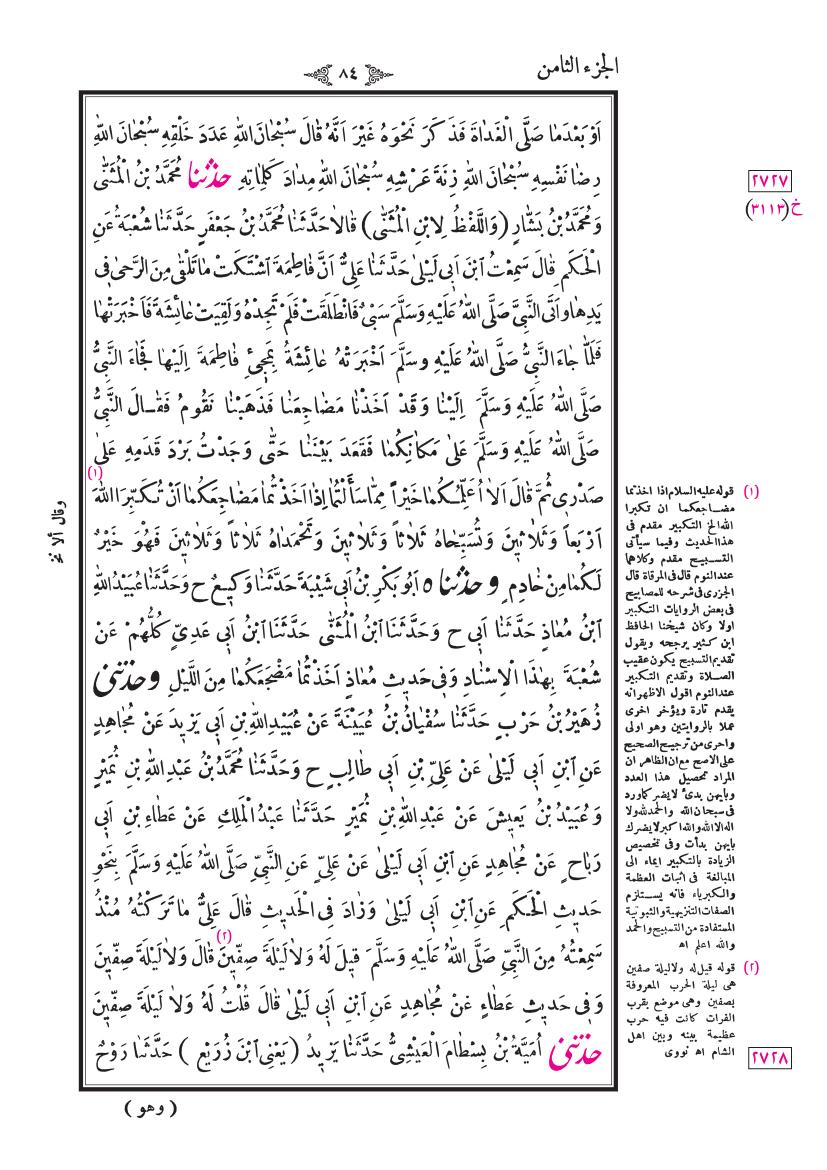 الجزء الثامن
٨٤
اَوْ بَعْدَمَا صَلَّى الْغَدَاةَ فَذَكَرَ نَحْوَهُ غَيْرَ اَنَّهُ قَالَ سُبْحَانَ اللهِ عَدَدَ خَلْقِهِ سُبْحَانَ اللهِ
رِضَا نَفْسِهِ سُبْحَانَ اللهِ زِنَةَ عَرْشِهِ سُبْحَانَ اللهِ مِدَادَ كَلِمَاتِهِ حدثنا مُحَمَّدُ بْنُ الْمُثَنَّى
وَمُحَمَّدُ بْنُ بَشَّارٍ (وَاللَّفْظُ لِابْنِ الْمُثَنَّى) قَالَا حَدَّثَنَا مُحَمَّدُ بْنُ جَعْفَرٍ حَدَّثَنَا شُعْبَةُ عَنِ
الْحَكَمِ قَالَ سَمِعْتُ ابْنَ اَبِى لَيْلَى حَدَّثَنَا عَلِىٌّ اَنَّ فَاطِمَةَ اشْتَكَتْ مَا تَلْقَى مِنَ الرَّحَى فِى
يَدِهَا وَاَتَى النَّبِىَّ صَلَّى اللهُ عَلَيْهِ وَسَلَّمَ سَبْىٌ فَانْطَلَقَتْ فَلَمْ تَجِدْهُ وَلَقِيَتْ عَائِشَةَ فَاَخْبَرَتْهَا
فَلَمَّا جَاءَ النَّبِىُّ صَلَّى اللهُ عَلَيْهِ وَسَلَّمَ اَخْبَرَتْهُ عَائِشَةُ بِمَجِىءِ فَاطِمَةَ اِلَيْهَا فَجَاءَ النَّبِىُّ
صَلَّى اللهُ عَلَيْهِ وَسَلَّمَ اِلَيْنَا وَقَدْ اَخَذْنَا مَضَاجِعَنَا فَذَهَبْنَا نَقُومُ فَقَالَ النَّبِىُّ
صَلَّى اللهُ عَلَيْهِ وَسَلَّمَ عَلَى مَكَانِكُمَا فَقَعَدَ بَيْنَنَا حَتَّى وَجَدْتُ بَرْدَ قَدَمِهِ عَلَى
صَدْرِى ثُمَّ قَالَ اَلَا اُعَلِّمُكُمَا خَيْرًا مِمَّا سَأَلْتُمَا اِذَا اَخَذْتُمَا مَضَاجِعَكُمَا اَنْ تُكَبِّرَا اللهَ (١)
اَرْبَعًا وَثَلَاثِينَ وَتُسَبِّحَاهُ ثَلَاثًا وَثَلَاثِينَ وَتَحْمَدَاهُ ثَلَاثًا وَثَلَاثِينَ فَهْوَ خَيْرٌ
لَكُمَا مِنْ خَادِمٍ وحدثناه اَبُو بَكْرِ بْنُ اَبِى شَيْبَةَ حَدَّثَنَا وَكِيعٌ ح وَحَدَّثَنَا عُبَيْدُ اللهِ
ابْنُ مُعَاذٍ حَدَّثَنَا اَبِى ح وَحَدَّثَنَا ابْنُ الْمُثَنَّى حَدَّثَنَا ابْنُ اَبِى عَدِىٍّ كُلُّهُمْ عَنْ
شُعْبَةَ بِهٰذَا الْاِسْنَادِ وَفِى حَدِيثِ مُعَاذٍ اَخَذْتُمَا مَضْجَعَكُمَا مِنَ اللَّيْلِ وحدثنى
زُهَيْرُ بْنُ حَرْبٍ حَدَّثَنَا سُفْيَانُ بْنُ عُيَيْنَةَ عَنْ عُبَيْدِ اللهِ بْنِ اَبِى يَزِيدَ عَنْ مُجَاهِدٍ
عَنِ ابْنِ اَبِى لَيْلَى عَنْ عَلِىِّ بْنِ اَبِى طَالِبٍ ح وَحَدَّثَنَا مُحَمَّدُ بْنُ عَبْدِ اللهِ بْنِ نُمَيْرٍ
وَعُبَيْدُ بْنُ يَعِيشَ عَنْ عَبْدِ اللهِ بْنِ نُمَيْرٍ حَدَّثَنَا عَبْدُ الْمَلِكِ عَنْ عَطَاءِ بْنِ اَبِى
رَبَاحٍ عَنْ مُجَاهِدٍ عَنِ ابْنِ اَبِى لَيْلَى عَنْ عَلِىٍّ عَنِ النَّبِىِّ صَلَّى اللهُ عَلَيْهِ وَسَلَّمَ بِنَحْوِ
حَدِيثِ الْحَكَمِ عَنِ ابْنِ اَبِى لَيْلَى وَزَادَ فِى الْحَدِيثِ قَالَ عَلِىٌّ مَا تَرَكْتُهُ مُنْذُ
سَمِعْتُهُ مِنَ النَّبِىِّ صَلَّى اللهُ عَلَيْهِ وَسَلَّمَ قِيلَ لَهُ وَلَا لَيْلَةَ صِفِّينَ (٢) قَالَ وَلَا لَيْلَةَ صِفِّينَ
وَفِى حَدِيثِ عَطَاءٍ عَنْ مُجَاهِدٍ عَنِ ابْنِ اَبِى لَيْلَى قَالَ قُلْتُ لَهُ وَلَا لَيْلَةَ صِفِّينَ
حدثنى اُمَيَّةُ بْنُ بِسْطَامَ الْعَيْشِىُّ حَدَّثَنَا يَزِيدُ (يَعْنِى ابْنَ زُرَيْعٍ) حَدَّثَنَا رَوْحٌ
(وهو)
٢٧٢٧
خ(٣١١٣)
(١) قوله عليه السلام اذا اخذتما
مضاجعكما ان تكبرا
الله الخ التكبير مقدم فى
هذا الحديث وفيما سيأتى
التسبيح مقدم وكلاهما
عند النوم قال فى المرقاة قال
الجزرى فى شرحه للمصابيح
فى بعض الروايات التكبير
اولا وكان شيخنا الحافظ
ابن كثير يرجحه ويقول
تقديم التسبيح يكون عقيب
الصلاة وتقديم التكبير
عند النوم اقول الاظهر انه
يقدم تارة ويؤخر اخرى
عملا بالروايتين وهو اولى
واحرى من ترجيح الصحيح
على الاصح مع ان الظاهر ان
المراد تحصيل هذا العدد
وبايهن بدئ لا يضر كما ورد
فى سبحان الله والحمد لله ولا
اله الا الله والله اكبر لا يضرك
بايهن بدأت وفى تخصيص
الزيادة بالتكبير ايماء الى
المبالغة فى اثبات العظمة
والكبرياء فانه يستلزم
الصفات التنزيهية والثبوتية
المستفادة من التسبيح والحمد
والله اعلم اه
(٢) قوله قيل له ولا ليلة صفين
هى ليلة الحرب المعروفة
بصفين وهى موضع بقرب
الفرات كانت فيه حرب
عظيمة بينه وبين اهل
الشام اه نووى
٢٧٢٨
وقال ألا نخ